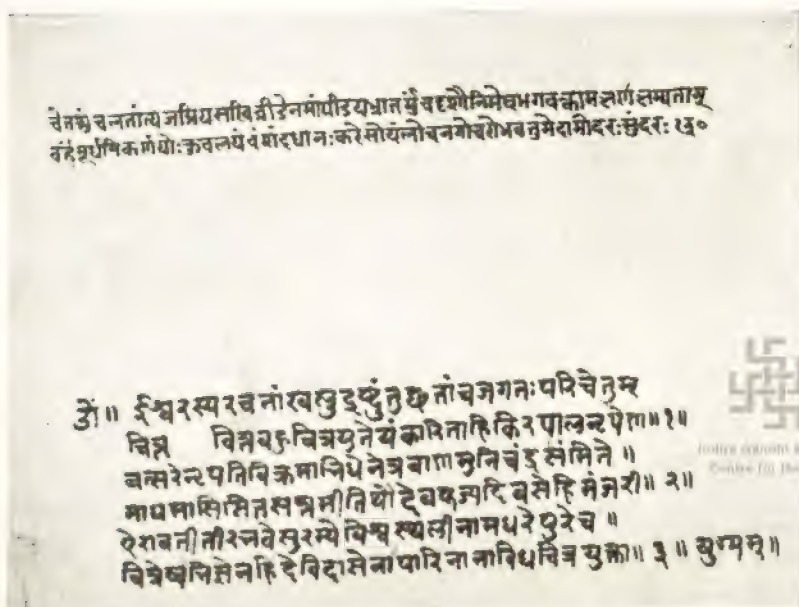 चेतश्चंचलतांत्यजप्रियसखिव्रीडेनमांपीडयभ्रातर्मुंचदृशौनिमेषभगवन्कामक्षणंक्षम्यताम्
बर्हंमूर्धनिकर्णयोःकुवलयंवंशंदधानःकरेसोयंलोचनगोचरोभवतुमेदामोदरःसुंदरः
ॐ॥ ईश्वरस्यरचनांखलुद्रष्टुंतुछतांचजगतःपरिचेतुम्
चित्र चित्रबहुचित्रयुतेयंकारिताहिकिरपालनृपेण॥१॥
वत्सरेनृपतिविक्रमानिधेनेत्रबाणमुनिचंद्रसंमिते॥
माघमासिसितसप्तमीतिथौदेवपूज्यदिवसेहिमंजरी॥२॥
ऐरावतीतीरभवेसुरम्येविश्वस्थलीनामधरेपुरेच॥
हिदेविदासेनापारिनानाविधचित्रयुक्ता॥३॥ युग्मम्॥
Indira Gandhi
Centre for the